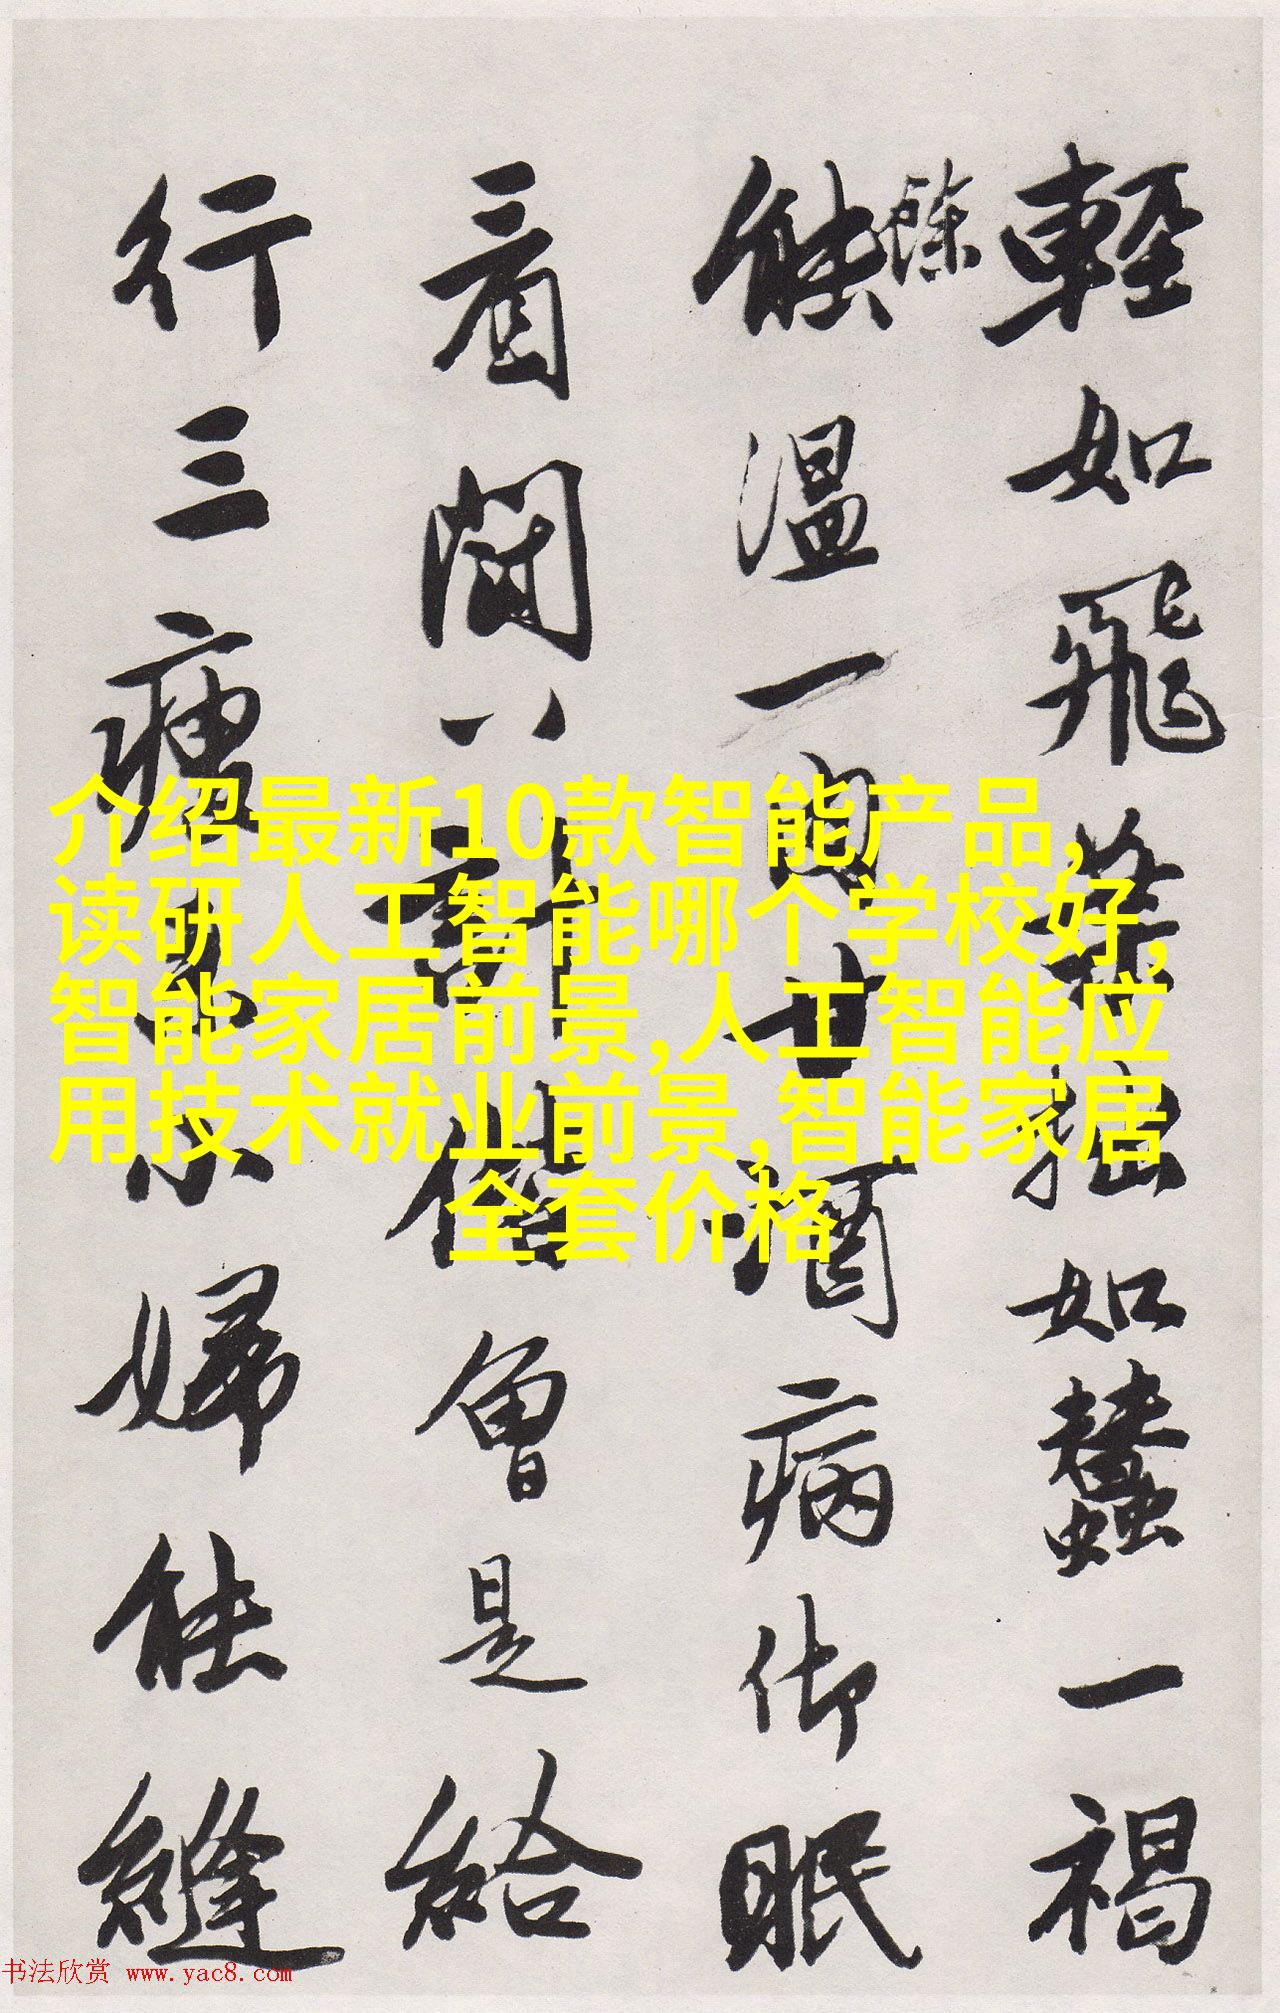 輕如飛葉拙如蠶一褐
餘
能溫一肉甘酒病眠
看計會是給
行三瘦小婦能縫
介绍最新10款智能产品,
读研人工智能哪个学校好,
智能家居前景,人工智能应
用技术就业前景,智能家居
全套价格
书法欣赏 www.yac8.com